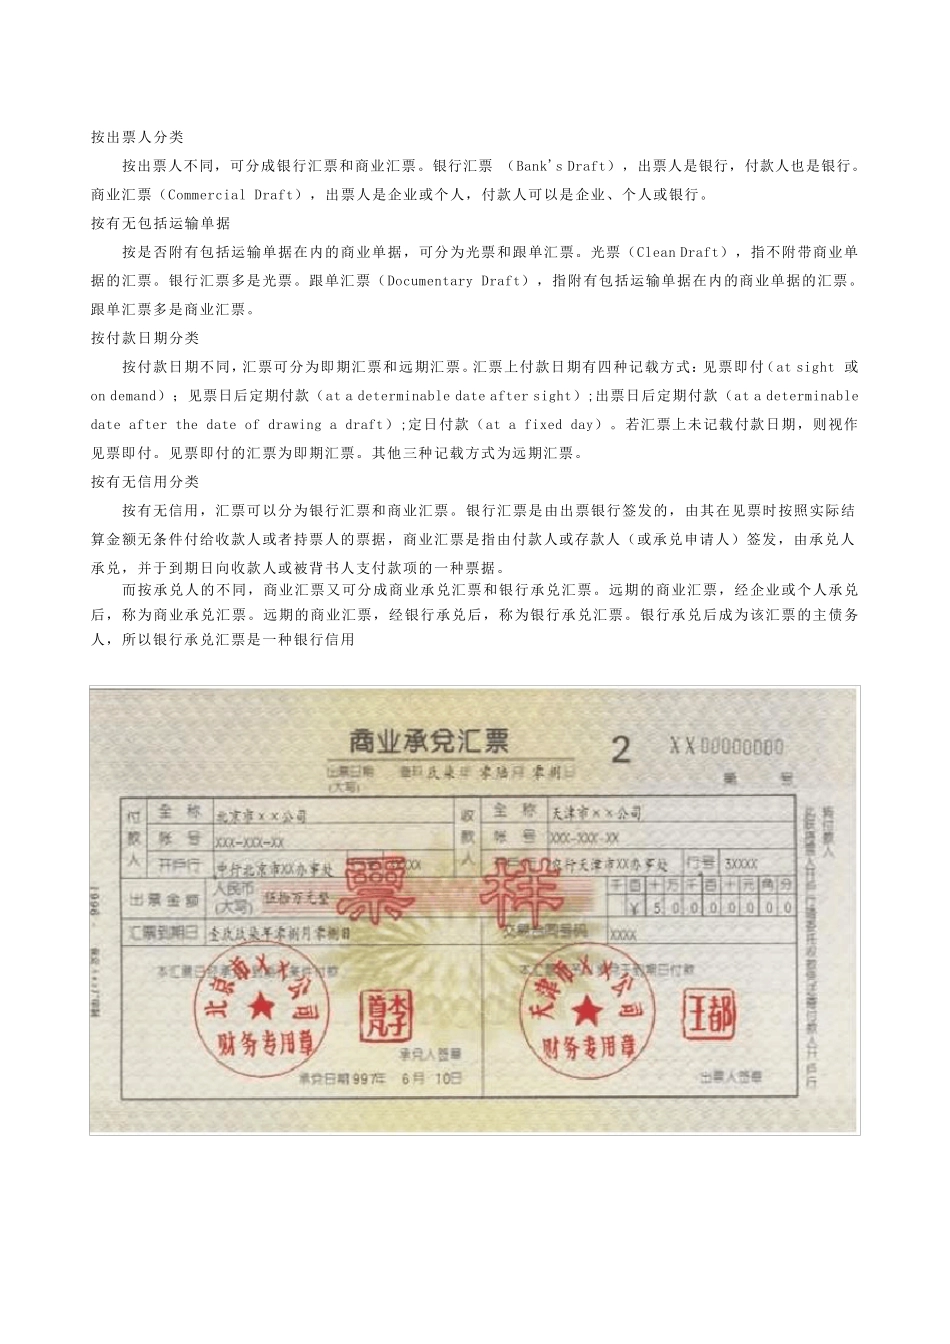 按出票人分类
按出票人不同，可分成银行汇票和商业汇票。银行汇票 （Bank's Draft），出票人是银行，付款人也是银行。
商业汇票（Commercial Draft），出票人是企业或个人，付款人可以是企业、个人或银行。
按有无包括运输单据
按是否附有包括运输单据在内的商业单据，可分为光票和跟单汇票。光票（Clean Draft），指不附带商业单
据的汇票。银行汇票多是光票。跟单汇票（Documentary Draft），指附有包括运输单据在内的商业单据的汇票。
跟单汇票多是商业汇票。
按付款日期分类
按付款日期不同，汇票可分为即期汇票和远期汇票。汇票上付款日期有四种记载方式：见票即付（at sight 或
on demand）；见票日后定期付款（at a determinable date after sight）;出票日后定期付款（at a determinable
date after the date of drawing a draft）;定日付款（at a fixed day）。若汇票上未记载付款日期，则视作
见票即付。见票即付的汇票为即期汇票。其他三种记载方式为远期汇票。
按有无信用分类
按有无信用，汇票可以分为银行汇票和商业汇票。银行汇票是由出票银行签发的，由其在见票时按照实际结
算金额无条件付给收款人或者持票人的票据，商业汇票是指由付款人或存款人（或承兑申请人）签发，由承兑人
承兑，并于到期日向收款人或被背书人支付款项的一种票据。
而按承兑人的不同，商业汇票又可分成商业承兑汇票和银行承兑汇票。远期的商业汇票，经企业或个人承兑
后，称为商业承兑汇票。远期的商业汇票，经银行承兑后，称为银行承兑汇票。银行承兑后成为该汇票的主债务
人，所以银行承兑汇票是一种银行信用
商业承兑汇票 2 XX00000000
出票日期 玖柒年 零陆月 零捌日
(大写) 第 号
付款人 全称 北京市××公司 收款人 全称 天津市××公司
帐号 XXX-XXX-XX 帐号 XXX-XXX-XX
开户行 中行北京市XX办事处 XXXX 开户行 天津市XX办事处 行号 3XXXX
出票金额 人民币(大写) 伍拾万元整 千百十万千百十元角分
¥50000000
票样
汇票到期日 壹玖玖柒年零捌月零捌日 交易合同号码 XXXX
本汇票
北京市××公司
财务专用章
承兑人签章
承兑日期 997年 6月 10日
本汇票 到期日付款
天津市××公司
财务专用章
王都
出票人签章